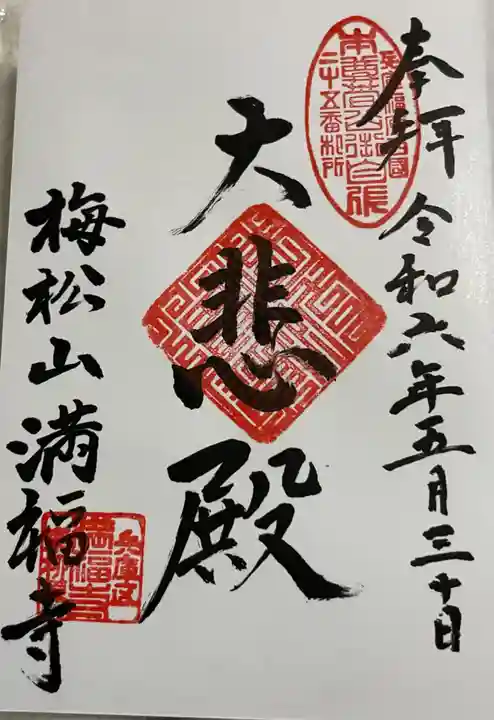 奉拝 令和六年五月三十日
大悲殿
梅松山満福寺
二十五番札所